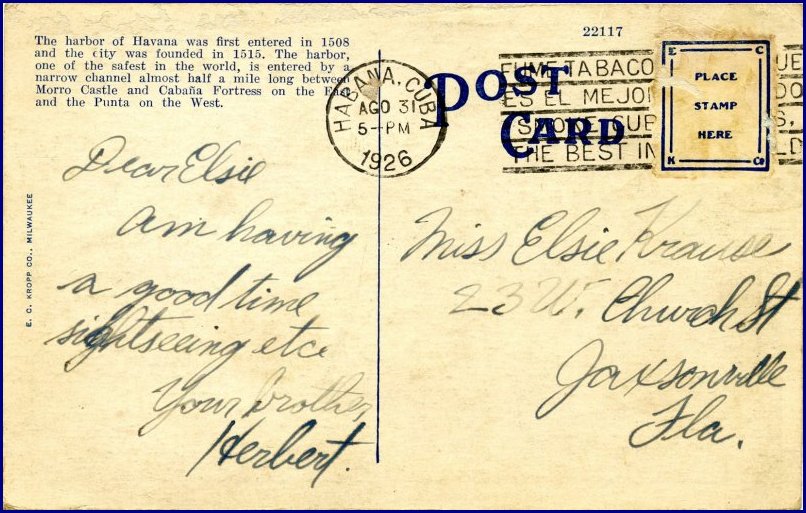 The harbor of Havana was first entered in 1508
and the city was founded in 1515. The harbor,
one of the safest in the world, is entered by a
narrow channel almost half a mile long between
Morro Castle and Cabaña Fortress on the East
and the Punta on the West.
22117
HABANA, CUBA
AGO 31
5-PM
1926
POST
CARD
FUME TABACO
ES EL MEJOR
SMOKE CUB
THE BEST IN
PLACE
STAMP
HERE
E C
K Co
E. C. KROPP CO., MILWAUKEE
Dear Elsie
Am having
a good time
sightseeing etc.
Your brother,
Herbert.
Miss Elsie Krause
23 W. Church St
Jaxsonville
Fla.